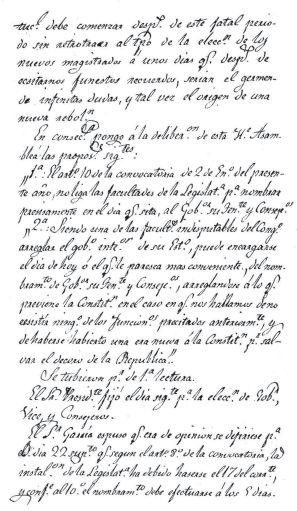 tucⁿ. debe comenzar despˢ. de este fatal perio-
do sin retrotraer al tpô de la elecⁿ. de los
nuevos magistrados á unos dias qᵉ. despˢ. de
ecsitarnos funestos recuerdos, serian el germen
de infinitas dudas, y tal vez el origen de una
nueva rebolⁿ
En consecᵃ. pongo á la deliberᵒⁿ. de esta Hᵉ. Asam-
blea las proposˢ. sigᵗᵉˢ:
"1ª. El artº. 10 de la convocatoria de 2 de Enº. del presen-
te año, no liga las facultades de la Legislatᵃ. pᵃ. nombrar
precisamente en el dia qᵉ. seta, al Gobᵒʳ. su Tenᵗᵉ. y Consejᵒˢ
"2ª. Siendo una de las facultᵉˢ. indisputables del Congᵒ.
arreglar el gobᵒ. intᵒʳ. de su Estᵒ., puede encargarse
el dia de hoy ó el qᵉ. le paresca mas conveniente, del nom-
bramᵗᵒ. de Gobᵒʳ. su Tenᵗᵉ. y Consejᵒˢ., arreglandose á lo qᵉ.
previene la Constitⁿ. en el caso en qᵉ. nos hallamos de no
ecsistir ningᵒ. de los funcionˢ. precitados anteriormᵗᵉ., y
de haberse habierto una era nueva á la Constitⁿ. pᵃ. sal-
var el decoro de la Republica".
Se tubieron pʳ. de 1ª. lectura.
El Sʳ. Presidᵗᵉ. fijó el dia sigᵗᵉ. pᵃ. la elecⁿ. de Gobʳ.,
Vice, y Consejeros.
El Sʳ. Garcia espuso qᵉ. era de opinion se difiriese pᵃ.
el dia 22 supᵗᵒ. qᵉ. segun el artº. 8º. de la convocatoria, la
instalᵒⁿ. de la Legislatᵃ. ha debido hacerse el 17 del corᵗᵉ.,
y confᵉ. al 10º. el nombramᵗᵒ. debe efectuarse á los 5 dias.